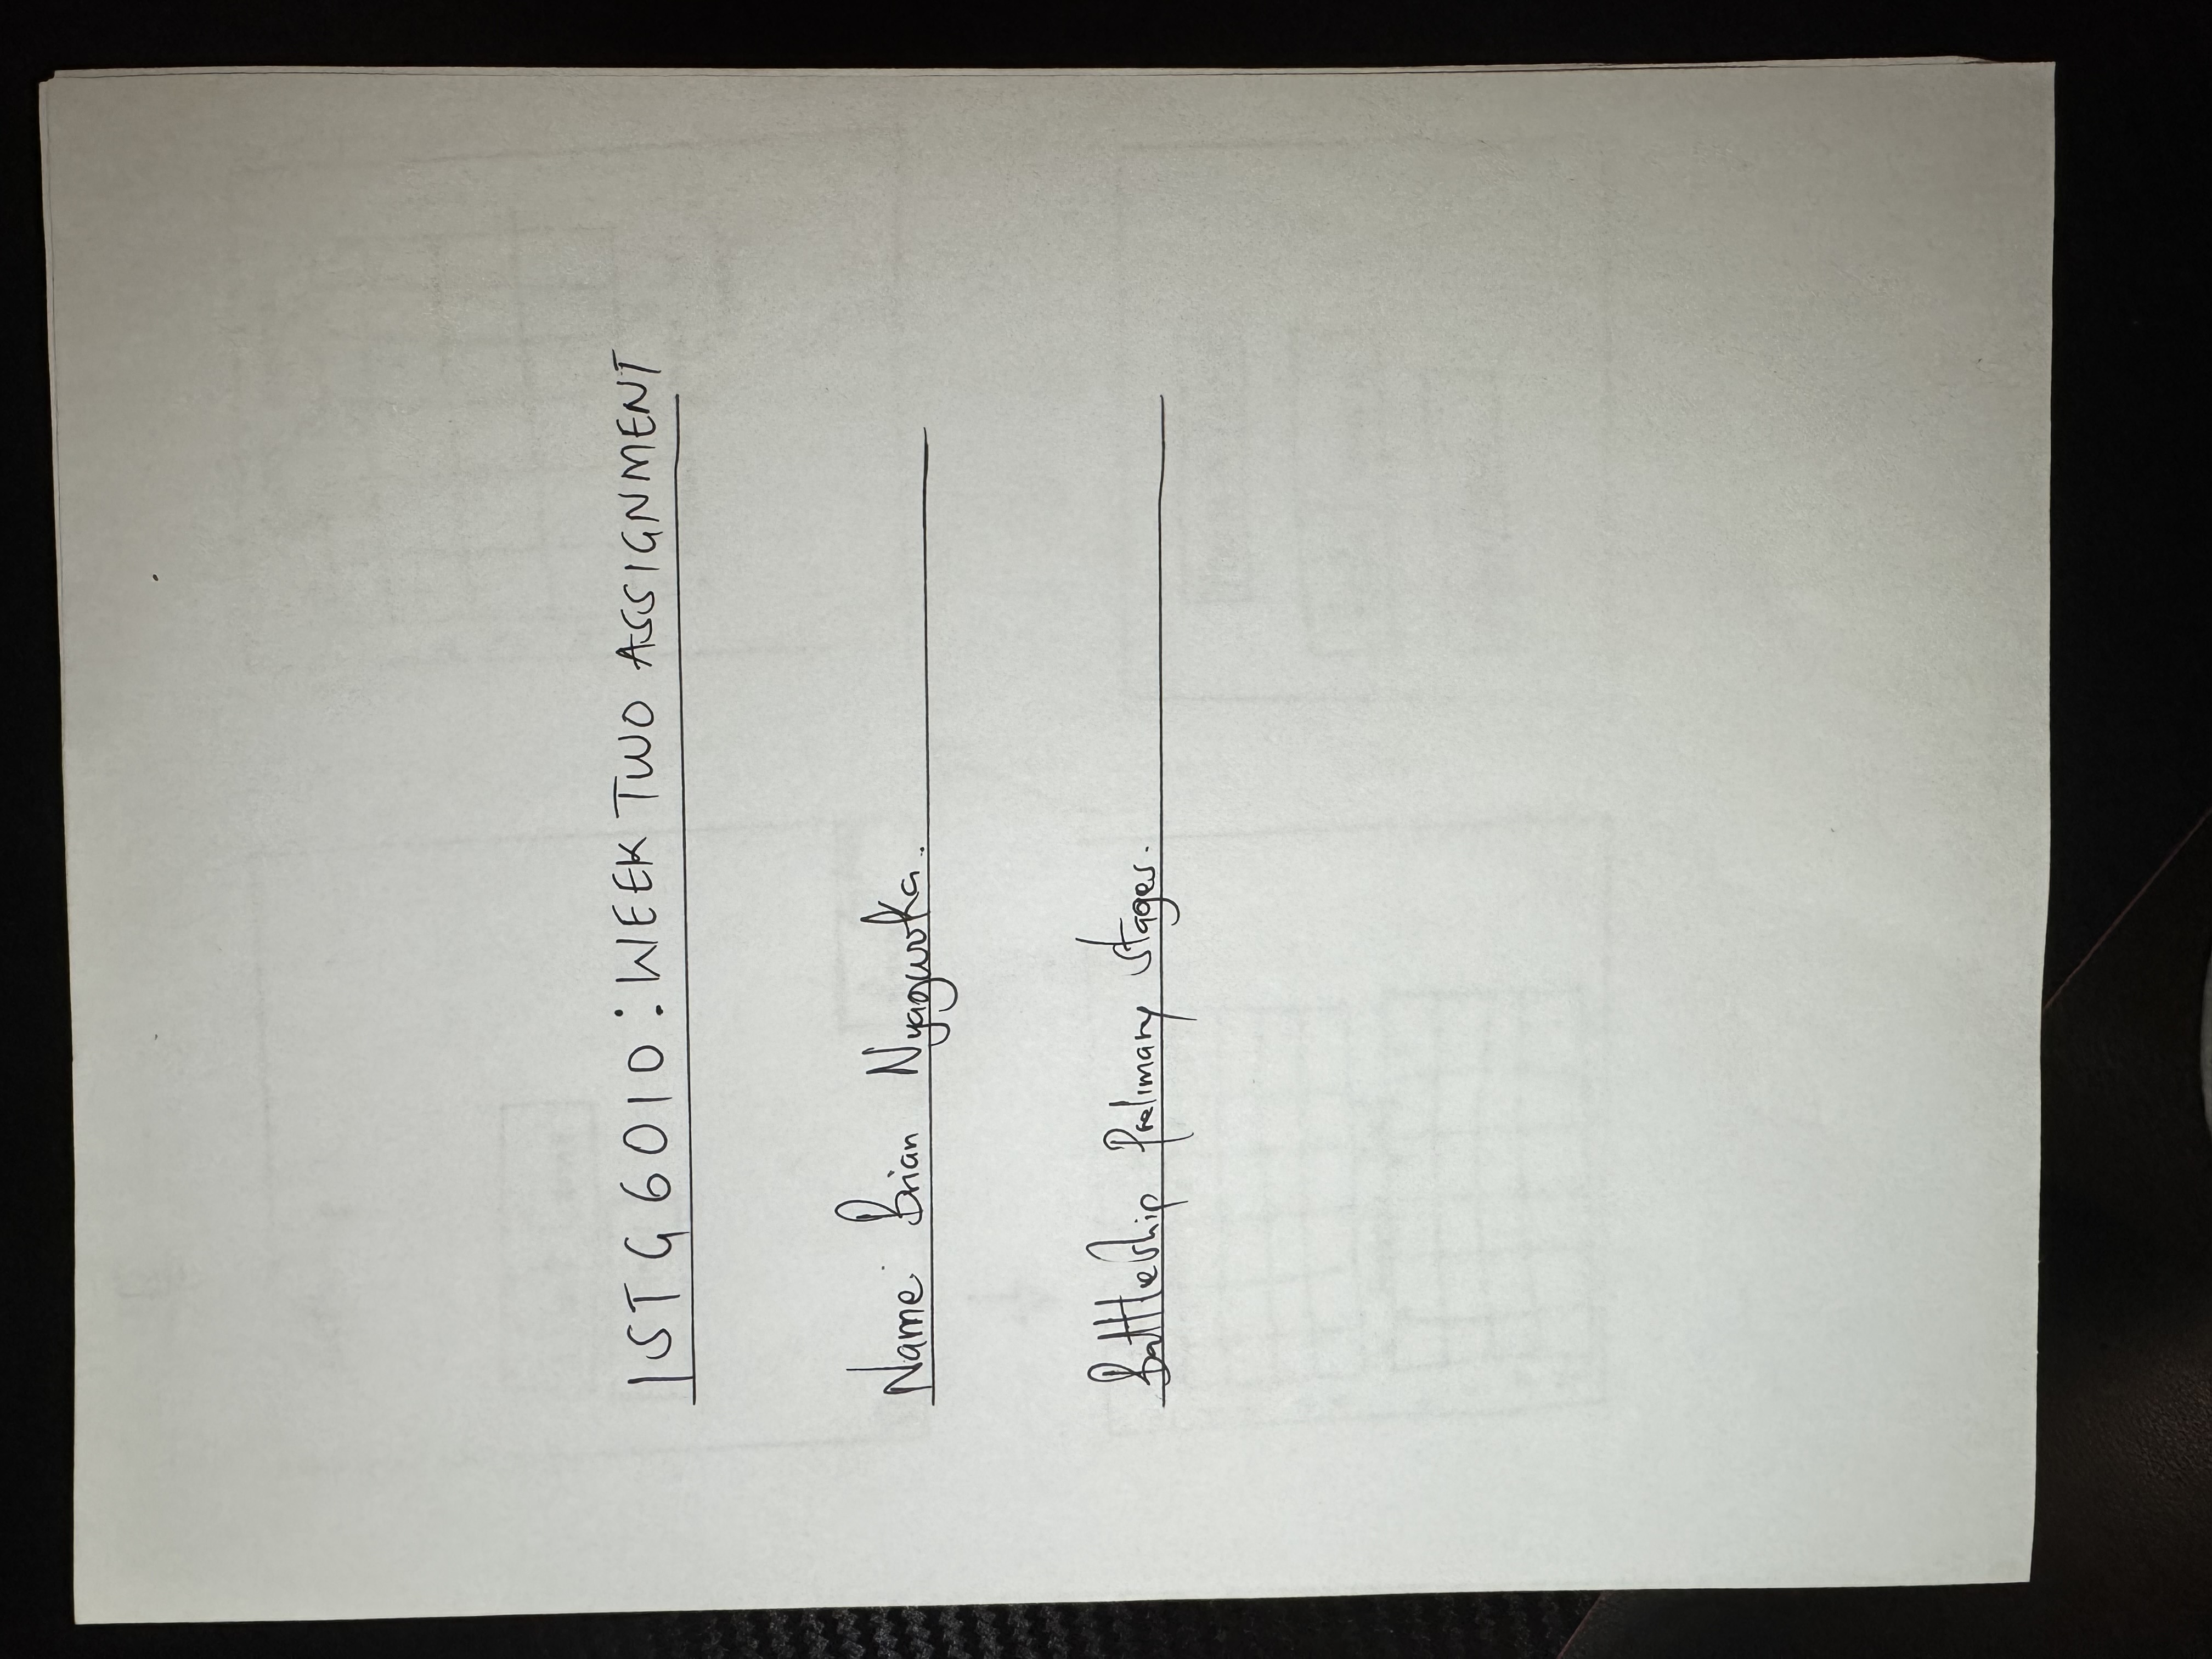 ISTG 6010: WEEK TWO ASSIGNMENT
Name: Brian Nyagwoka.
Battleship Prelimary stages.